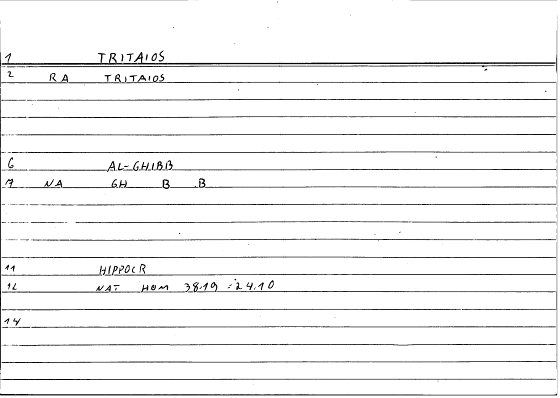 1 TRITAIOS
2 RA TRITAIOS
6 AL-GHIBB
7 NA GH B B
11 HIPPOCR
12 NAT HOM 38.19 :24.10
14